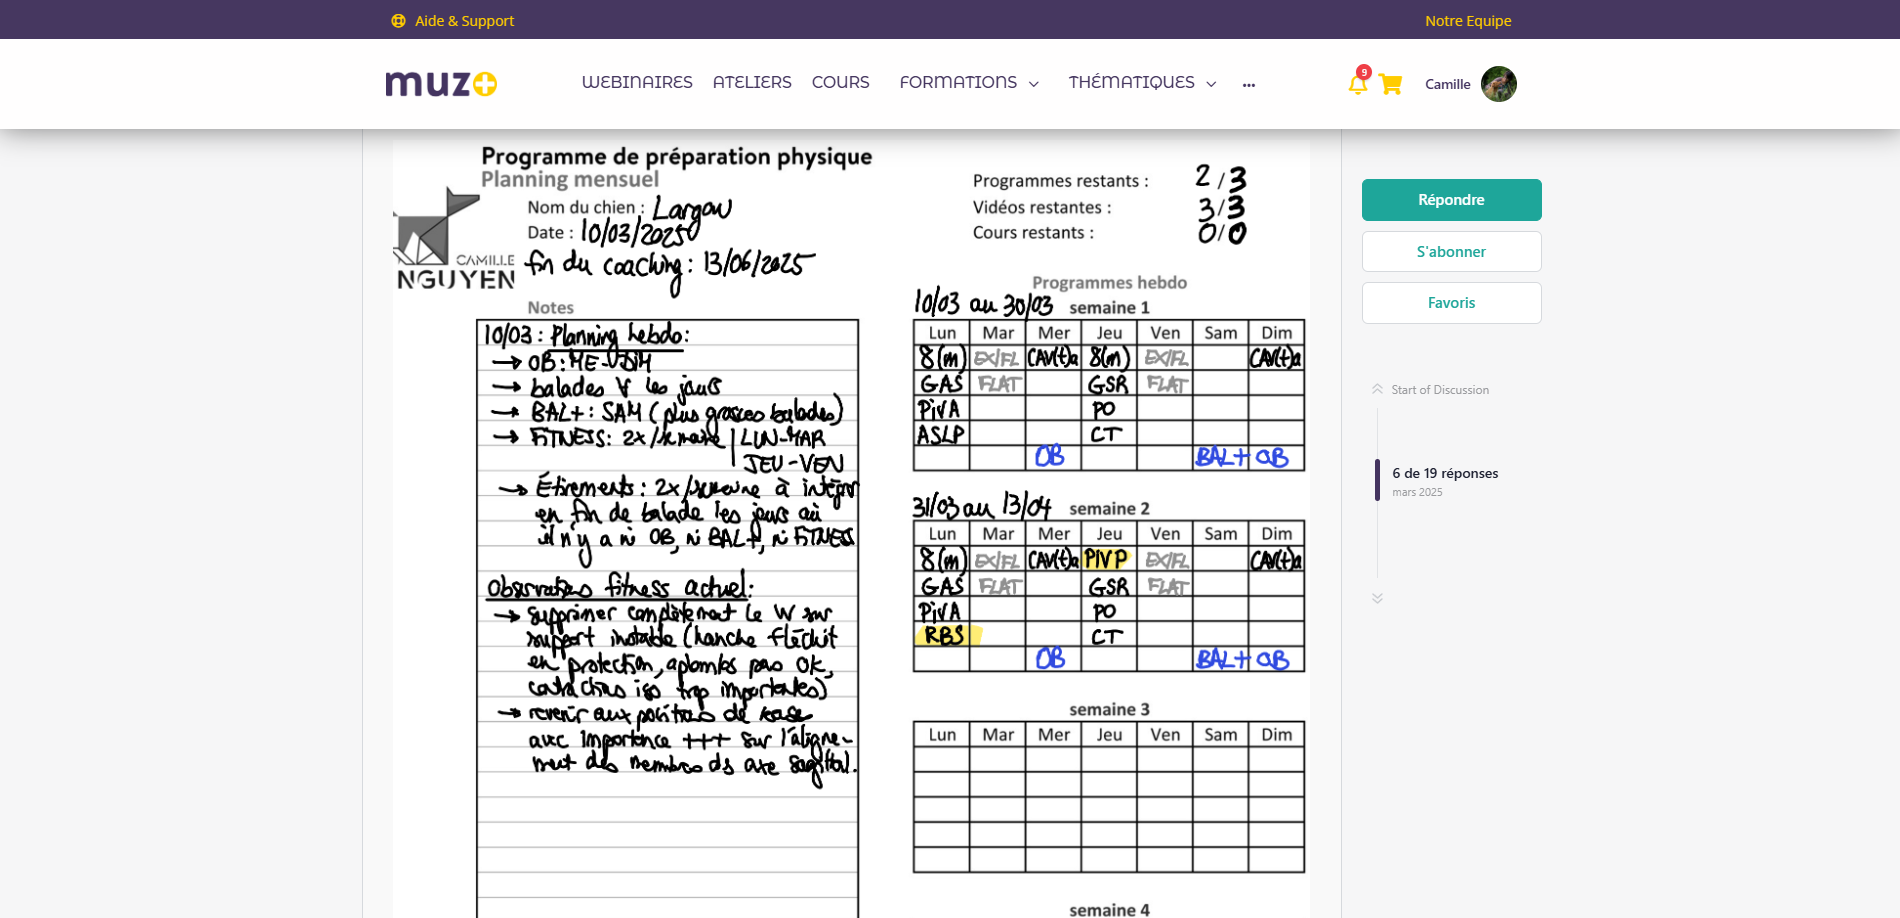 Aide & Support
Notre Equipe
muz+
WEBINAIRES
ATELIERS
COURS
FORMATIONS
THÉMATIQUES
...
9
Camille
Programme de préparation physique
Planning mensuel
Nom du chien : Largow
Date : 10/03/2025
fin du coaching : 13/06/2025
CAMILLE
NGUYEN
Programmes restants : 2/3
Vidéos restantes : 3/3
Cours restants : 0/0
Notes
10/03 : Planning hebdo :
→ OB : ME - DIM
→ balades ∀ les jours
→ BAL+ : SAM (plus grosses balades)
→ FITNESS : 2x/semaine | LUN-MAR
JEU-VEN
→ Étirements : 2x/semaine à intégrer
en fin de balade les jours où
il n'y a ni OB, ni BAL+, ni FITNESS
Observations fitness actuel :
→ supprimer complètement le W sur
support instable (hanche fléchit
en protection, aplombs pas OK,
contractions iso trop importantes)
→ revenir aux positions de base
avec importance +++ sur l'aligne-
ment des membres ds axe sagittal.
Programmes hebdo
10/03 au 30/03 semaine 1
Lun Mar Mer Jeu Ven Sam Dim
8(m) EX/FL CAV(t)a 8(m) EX/FL CAV(t)a
GAS FLAT GSR FLAT
PIVA PO
ASLP CT
OB BAL+ OB
31/03 au 13/04 semaine 2
Lun Mar Mer Jeu Ven Sam Dim
8(m) EX/FL CAV(t)a PIVP EX/FL CAV(t)a
GAS FLAT GSR FLAT
PIVA PO
RBS CT
OB BAL+ OB
semaine 3
Lun Mar Mer Jeu Ven Sam Dim
semaine 4
Répondre
S'abonner
Favoris
Start of Discussion
6 de 19 réponses
mars 2025